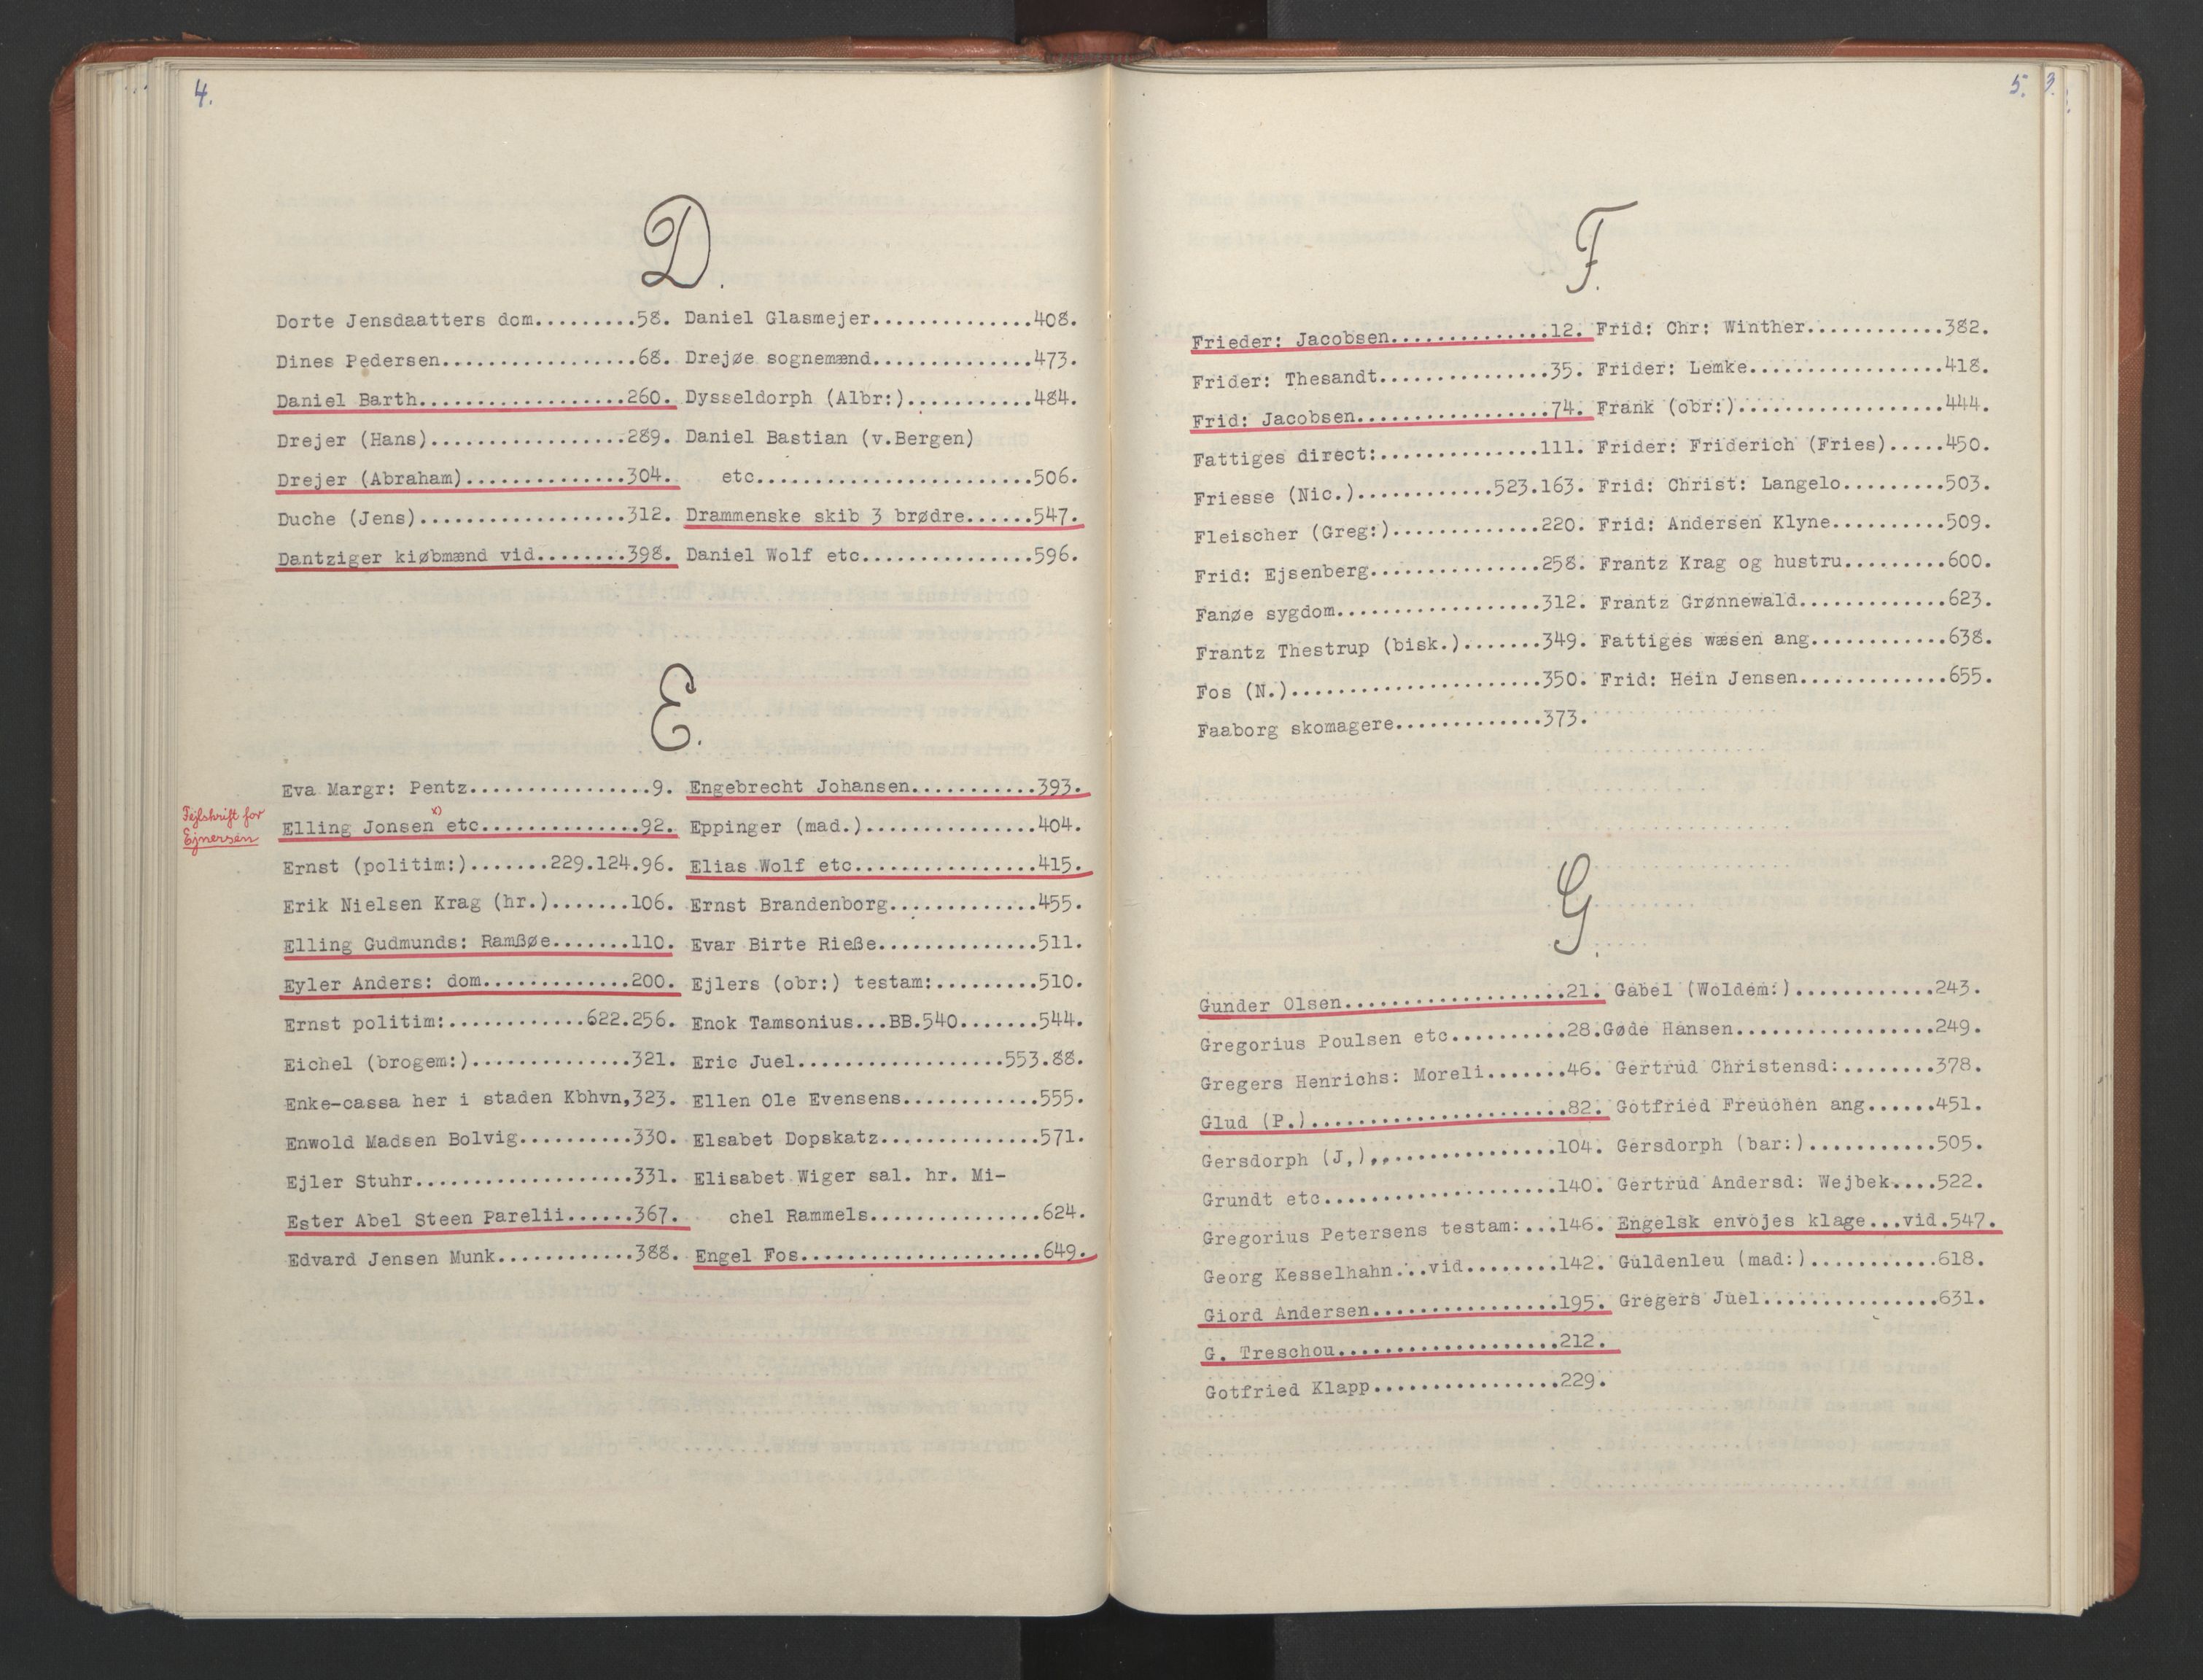 4.
D.
Dorte Jensdaatters dom.........58.
Dines Pedersen.................68.
Daniel Barth..................260.
Drejer (Hans).................289.
Drejer (Abraham)..............304.
Duche (Jens)..................312.
Dantziger kiøbmænd vid........398.
Daniel Glasmejer..............408.
Drejøe sognemænd..............473.
Dysseldorph (Albr:)...........484.
Daniel Bastian (v.Bergen)
etc........................506.
Drammenske skib 3 brødre......547.
Daniel Wolf etc...............596.
E.
Eva Margr: Pentz................9.
Fejlskrift for
Ejnersen
Elling Jonsen x) etc..............92.
Ernst (politim:).......229.124.96.
Erik Nielsen Krag (hr.).......106.
Elling Gudmunds: Ramßøe.......110.
Eyler Anders: dom.............200.
Ernst politim:............622.256.
Eichel (brogem:)..............321.
Enke-cassa her i staden Kbhvn,323.
Enwold Madsen Bolvig..........330.
Ejler Stuhr...................331.
Ester Abel Steen Parelii......367.
Edvard Jensen Munk............388.
Engebrecht Johansen...........393.
Eppinger (mad.)...............404.
Elias Wolf etc................415.
Ernst Brandenborg.............455.
Evar Birte Rieße..............511.
Ejlers (obr:) testam:.........510.
Enok Tamsonius...BB.540.......544.
Eric Juel..................553.88.
Ellen Ole Evensens............555.
Elsabet Dopskatz..............571.
Elisabet Wiger sal. hr. Mi-
chel Rammels...............624.
Engel Fos.....................649.
5.
3.
F.
Frieder: Jacobsen..............12.
Frider: Thesandt...............35.
Frid: Jacobsen.................74.
Fattiges direct:..............111.
Friesse (Nic.)............523.163.
Fleischer (Greg:).............220.
Frid: Ejsenberg...............258.
Fanøe sygdom..................312.
Frantz Thestrup (bisk.).......349.
Fos (N.)......................350.
Faaborg skomagere.............373.
Frid: Chr: Winther............382.
Frider: Lemke.................418.
Frank (obr:)..................444.
Frider: Friderich (Fries).....450.
Frid: Christ: Langelo.........503.
Frid: Andersen Klyne..........509.
Frantz Krag og hustru.........600.
Frantz Grønnewald.............623.
Fattiges wæsen ang............638.
Frid: Hein Jensen.............655.
G.
Gunder Olsen...................21.
Gregorius Poulsen etc..........28.
Gregers Henrichs: Moreli.......46.
Glud (P.)......................82.
Gersdorph (J,),...............104.
Grundt etc....................140.
Gregorius Petersens testam:...146.
Georg Kesselhahn...vid........142.
Giord Andersen................195.
G. Treschou...................212.
Gotfried Klapp................229.
Gabel (Woldem:)............243.
Gøde Hansen.................249.
Gertrud Christensd:........378.
Gotfried Freuchen ang......451.
Gersdorph (bar:)...........505.
Gertrud Andersd: Wejbek....522.
Engelsk envojes klage...vid.547.
Güldenleu (mad:)...........618.
Gregers Juel...............631.